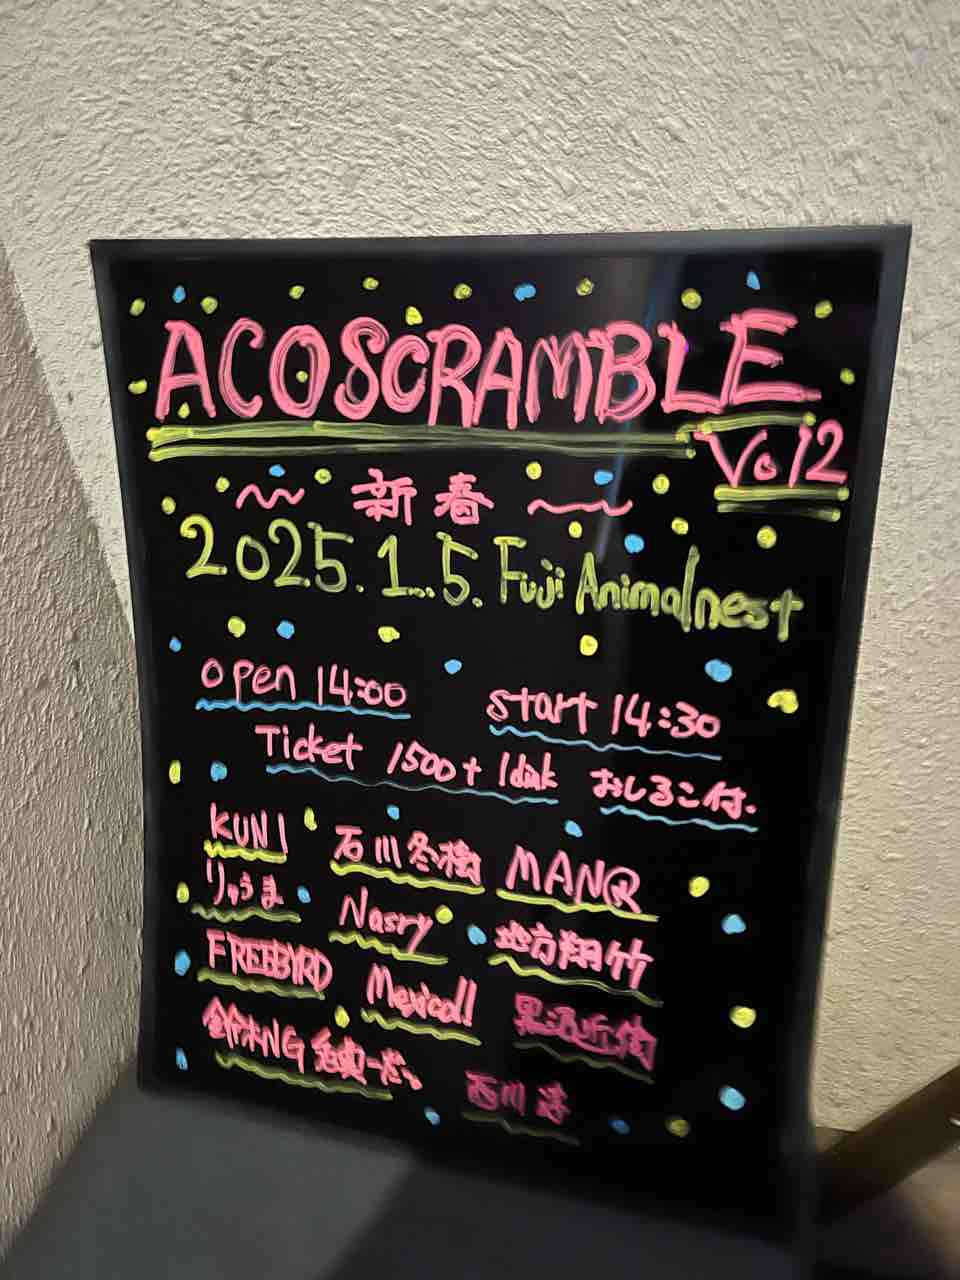 ACOSCRAMBLE
Vol2
~ 新春 ~
2025.1.5. Fuji Animalnest
open 14:00 start 14:30
Ticket 1500+1drink おしるこ付.
KUNI 石川冬樹 MANQ
りゅうま Nasry 地方翔竹
FREEBYRD Mexico!!
鈴木NG
西川